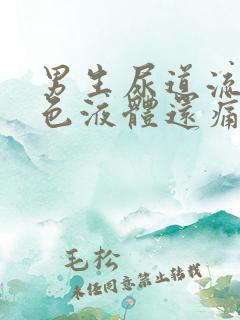 男生尿道流
色液體還痛
毛松
未经同意禁止转载